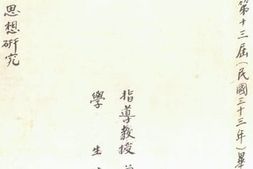 第十三屆(民國三十三年)畢
指導教授
學生
思想研究